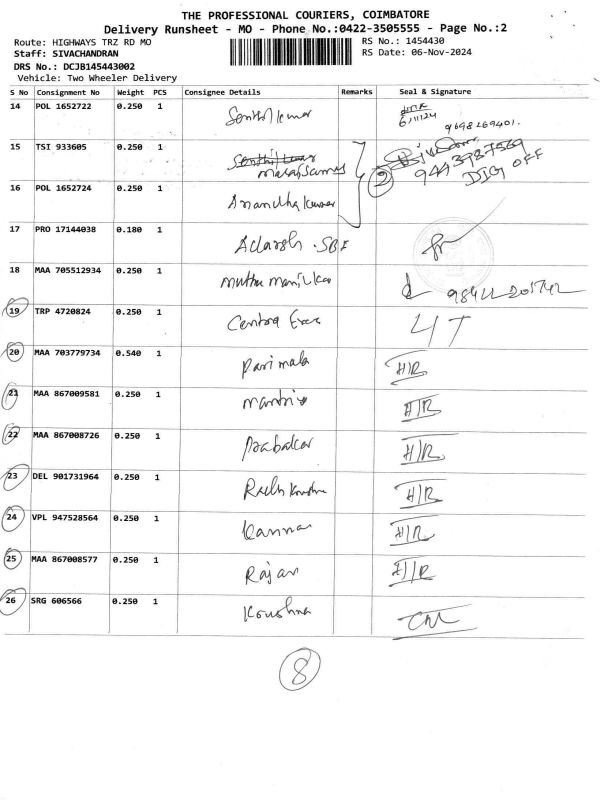 THE PROFESSIONAL COURIERS, COIMBATORE
Delivery Runsheet - MO - Phone No.:0422-3505555 - Page No.:2
Route: HIGHWAYS TRZ RD MO RS No.: 1454430
Staff: SIVACHANDRAN RS Date: 06-Nov-2024
DRS No.: DCJB145443002
Vehicle: Two Wheeler Delivery
S No Consignment No Weight PCS Consignee Details Remarks Seal & Signature
14 POL 1652722 0.250 1 Senthil kumar 6/11/24
9698269401.
15 TSI 933605 0.250 1 9443987569
DIG OFF
16 POL 1652724 0.250 1 Anandha kumar 2
17 PRO 17144038 0.180 1 Adarsh . SBI
18 MAA 705512934 0.250 1 muthu manikka
19 TRP 4720824 0.250 1 Centra Exce
20 MAA 703779734 0.540 1 Parimala H/R
21 MAA 867009581 0.250 1 H/R
22 MAA 867008726 0.250 1 Prabakar H/R
23 DEL 901731964 0.250 1 H/R
24 VPL 947528564 0.250 1 Kannan H/R
25 MAA 867008577 0.250 1 Rajan H/R
26 SRG 606566 0.250 1 Koushna
8